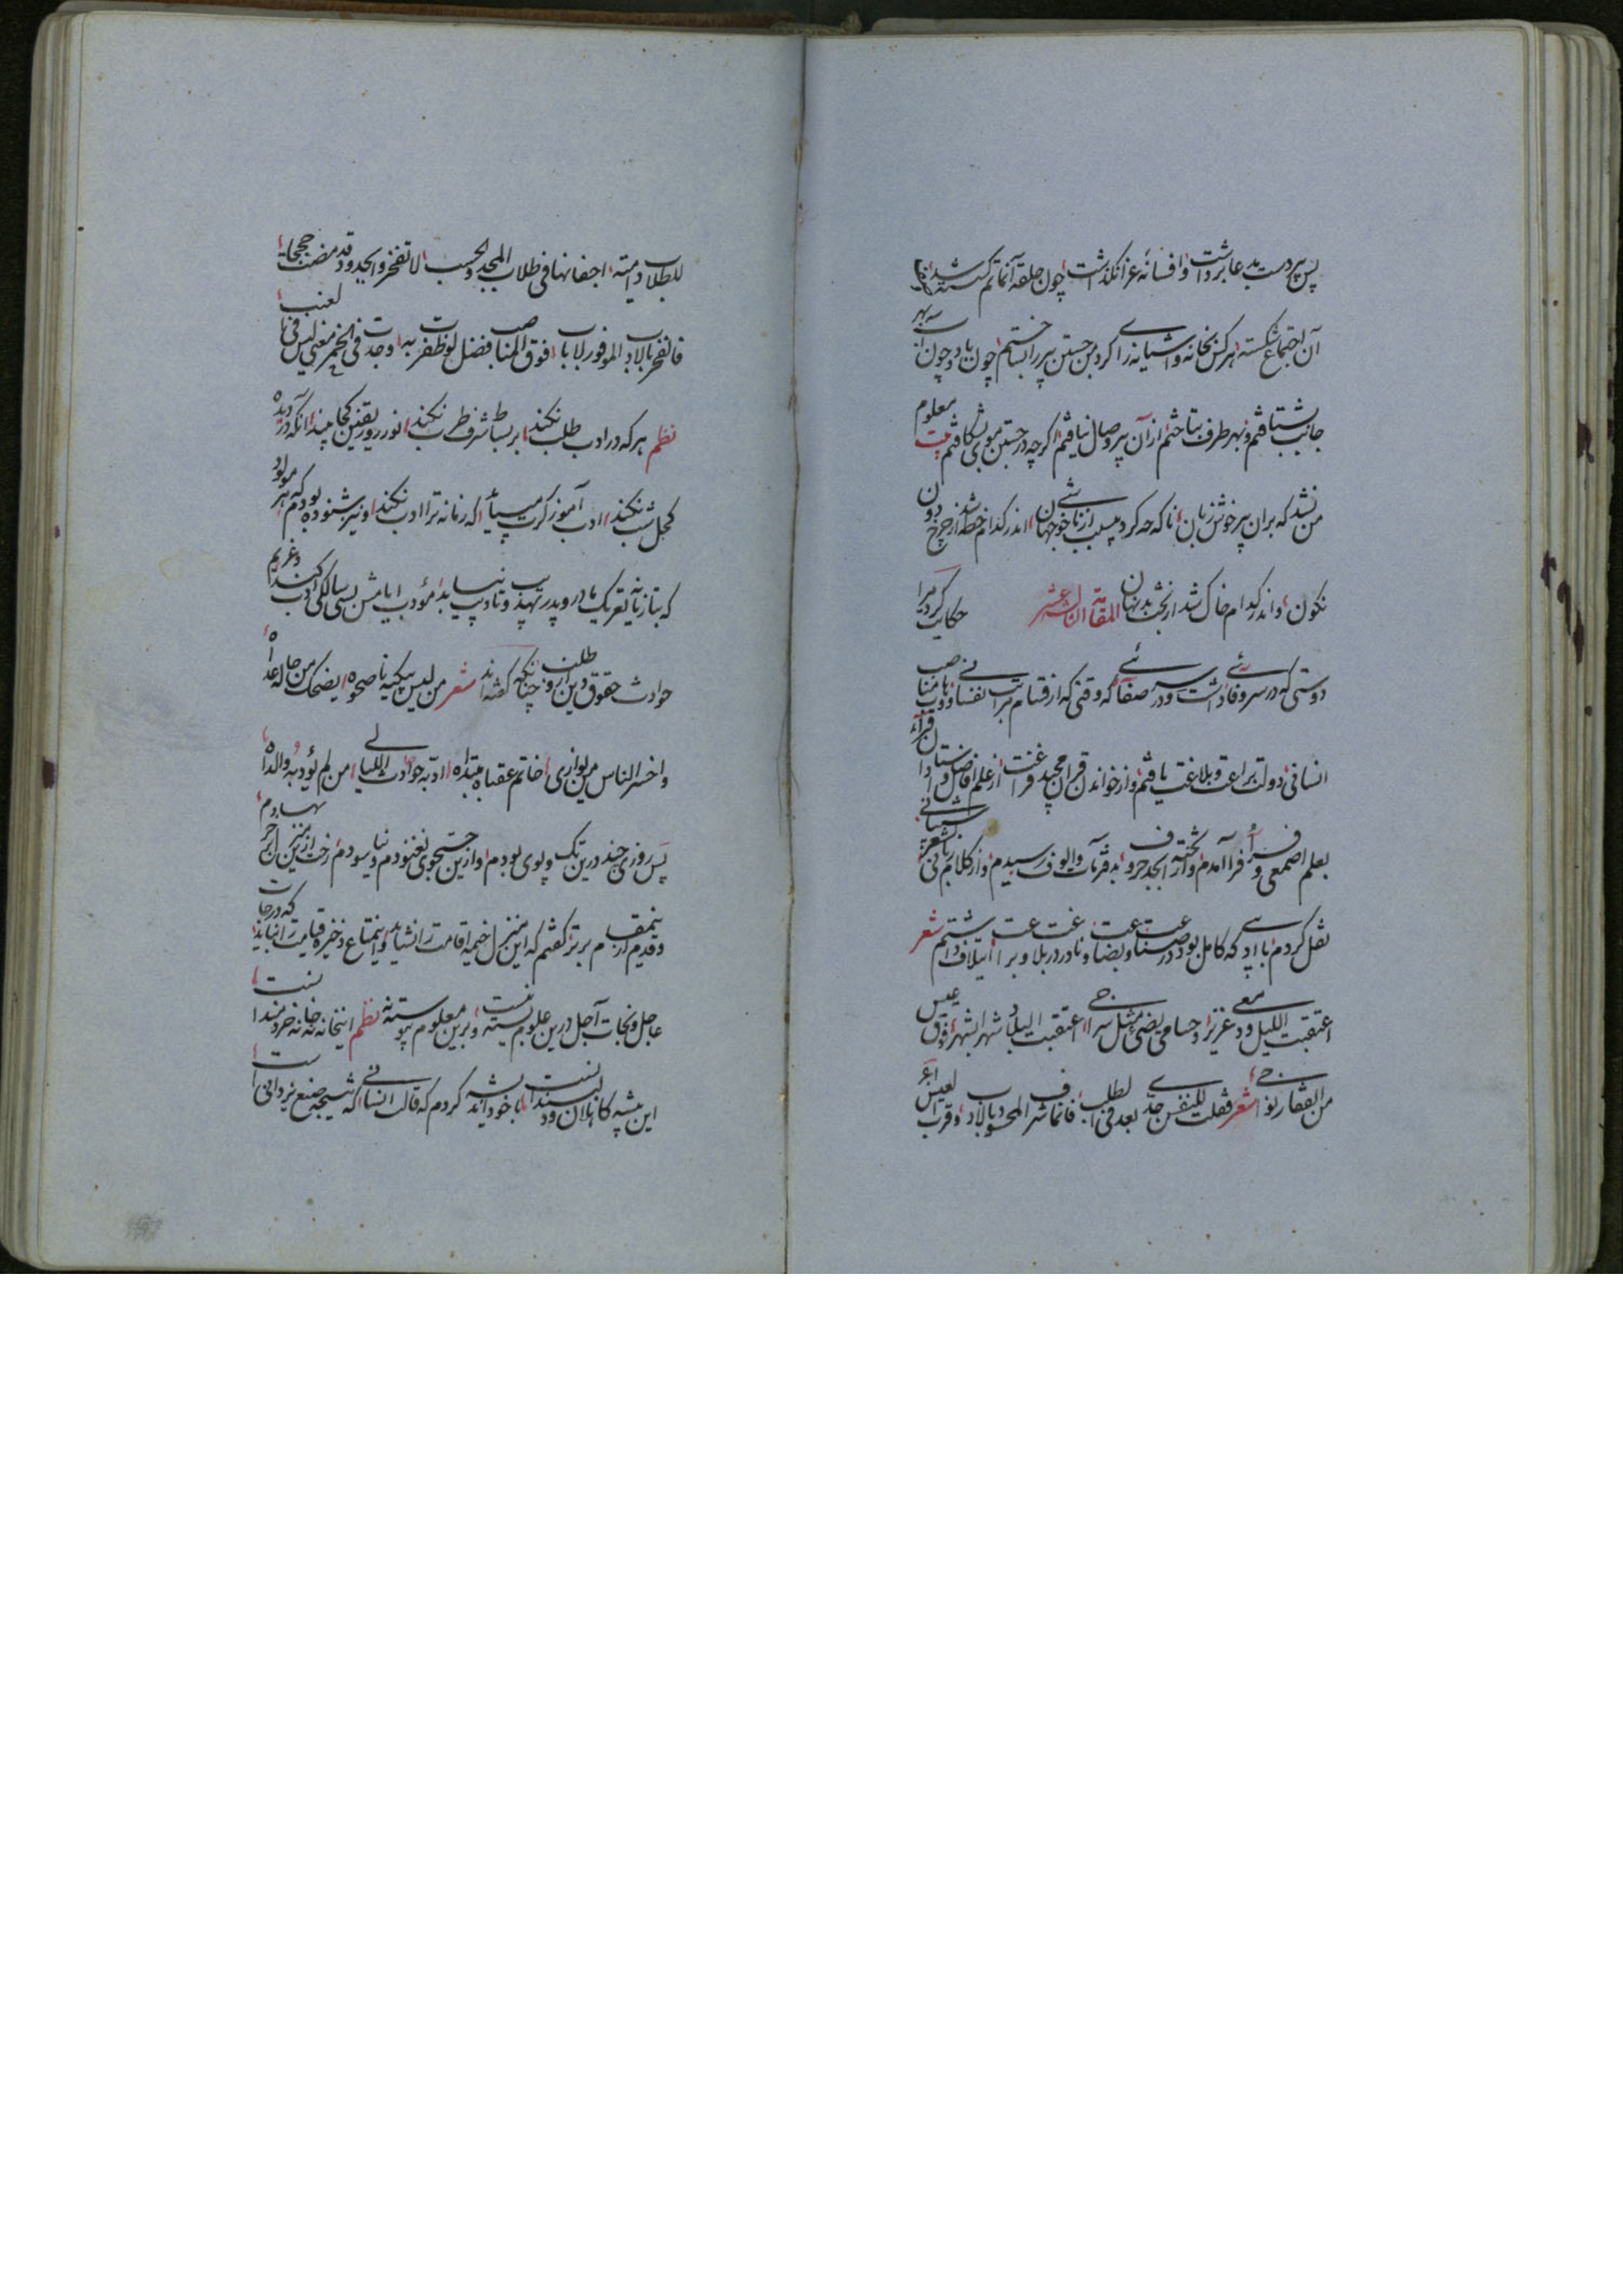 پس پیر دست بدعا برداشت و افسانه عزا نگذاشت چون حلقه آن ماتم گسسته شد و
آن اجتماع شکسته هرکس خانه و آشیانه را کرد من جستن پیر را بساختم چون باد و چون آب بهر
جانب شتافتم و بهر طرف بتاختم از آن پیر وصال نیافتم اگرچه در جستن موی بشکافتم بیت معلوم
من نشد که بران پیر خوش زبان ناگه چه کرد بوالعجب از ناخوشی جهان اندر کدام خطه شد از چرخ دون
نگون و اندر کدام خاک شد از بخت بد نهان المقامة الثالث عشر حکایت کرد مرا
دوستی که در سر وفائی داشت و در سر صفائی که وقتی که از اقسام مراتب نفسانی و ابواب مناصب
انسانی دولت براعت و بلاغت یافتم و از خواندن قرآن مجید فراغت از علم افاضل و استادان قرآن
بعلم اصمعی و فرا آمدم و از تخته ابجد حروف به قربات والوف رسیدم و از کلام ربانی بشعر شیبانی
نقل کردم با ادیبی که کامل بود در صناعت و بضاعت و نادر در بلاغت و براعت ایتلاف داشتم شعر
اعتقبت اللیل ودی عزیز معی وحسامی یضی مثل سراجی اعتقبت البلاد شهرا بشهر فوق عیس
من القفار نواجی شعر فقلت للنفس جدی بعد فی الطلب فانما شرف المحسود بالادب وقرب العیس
للطلاب دامیة اجفانها فی طلاب المجد والحسب لا تفخر والجدود قد مضت حججا
فافخر بالادب الموفور لابأب فوق المناصب فضل لو ظفرت به وجدت فی الخمر معنی لیس فی العنب
نظم هر که در ادب طلب نکند بر بساط شرف طرب نکند نور روز یقین کجا بیند آنکه در دیده
کحل شب نکند ادب آموز کرت میباید که زمانه ترا ادب نکند و نیز شنوده بودم که هر مولود
که بتازیانه تعریک مادر و پدر تهذیب و تادیب نیابد مؤدب ایامش بسیلی ادب کند و غریم
حوادث حقوق دین ازو طلبد چنانکه گفته اند شعر من لیس یبکیه ناصحوه یضحک من حاله عداه
واخسر الناس من یوازی خاتم عقباه مبتداه ادبه حوادث اللیالی من لم یؤدبه والداه
پس روزی چند درین تک و پوی بودم و ازین جستجوی نغنودم و نیاسودم رخت ازین منزل برتر نهادم
و قدم ازین مقام برتر گفتم که این منزل خیمه اقامت را نشاید و این متاع ذخیره قیامت را نباید که درجات
عاجل و نجات آجل درین علوم بسته نیست و برین معلوم پیوسته نه نظم این خانه نه خانه خردمندانست
این بیشه کاهلان و دلبندانست با خود اندیشه کردم که قالب انسانی که نتیجه صنع یزدانی است